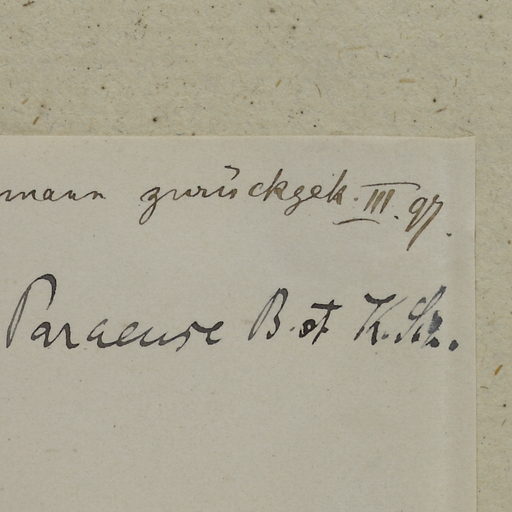 mann zurückgek. III. 97.
Paraense B. et K. Sch.